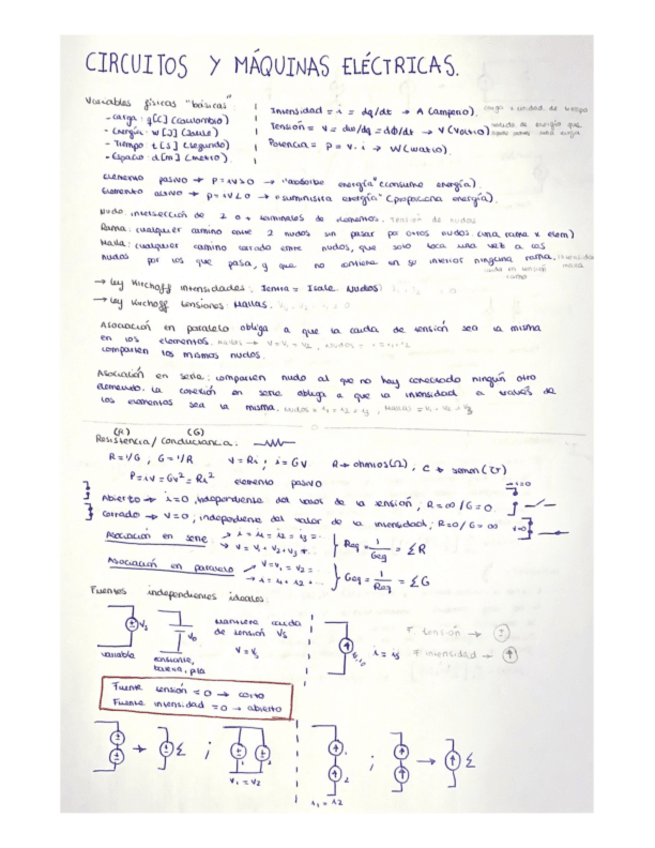 CIRCUITOS Y MÁQUINAS ELÉCTRICAS.
Variables físicas "básicas"
- carga · q [C] (coulombio)
- Energía · w [J] (Joule)
- Tiempo t [s] (segundo)
- Espacio · d [m] (metro).
Intensidad = i = dq/dt → A (amperio).
Tensión = v = dw/dq = dΦ/dt → V (Voltio)
Potencia = p = v · i → W (watio).
Elemento pasivo → p = iv > 0 → "absorbe energía" (consume energía).
Elemento activo → p = iv < 0 → "suministra energía" (proporciona energía).
Nudo: intersección de 2 o + terminales de elementos. Tensión de nudos
Rama: cualquier camino entre 2 nudos sin pasar por otros nudos. (una rama x elem)
Malla: cualquier camino cerrado entre nudos, que solo toca una vez a los
nudos por los que pasa, y que no contiene en su interior ninguna rama.
→ Ley Kirchoff intensidades: Ientra = Isale. Nudos
→ Ley Kirchoff tensiones: Mallas.
Asociación en paralelo obliga a que la caída de tensión sea la misma
en los elementos. Mallas → V = V₁ = V₂
comparten los mismos nudos.
Asociación en serie: comparten nudo al que no hay conectado ningún otro
elemento. La conexión en serie obliga a que la intensidad a través de
los elementos sea la misma.
(R) (G)
Resistencia / conductancia.
R = 1/G , G = 1/R V = Ri ; i = GV R → ohmios (Ω),
P = iV = GV² = Ri² elemento pasivo
Abierto → i = 0, independiente del valor de la tensión, R = ∞ / G = 0 i=0
Cerrado → V = 0; independiente del valor de la intensidad; R = 0 / G = ∞ V=0
Asociación en serie → i = i₁ = i₂ = i₃ = ·· → V = V₁ + V₂ + V₃ + } Req = 1/Geq = ΣR
Asociación en paralelo → V = V₁ = V₂ = → i = i₁ + i₂ + ··· } Geq = 1/Req = ΣG
Fuentes independientes ideales:
Vs
V₀
Mantiene caída
de tensión Vs
V = Vs
variable
constante,
batería, pila
i = is
F. tensión →
F intensidad →
Fuente tensión = 0 → corto
Fuente intensidad = 0 → abierto
Σ ;
V₁ = V₂
; Σ
i₁ = i₂